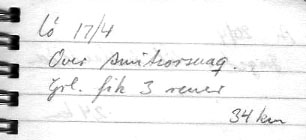 Lö 17/4
Over Smitsorsuaq.
Grl. fik 3 rener
34 km